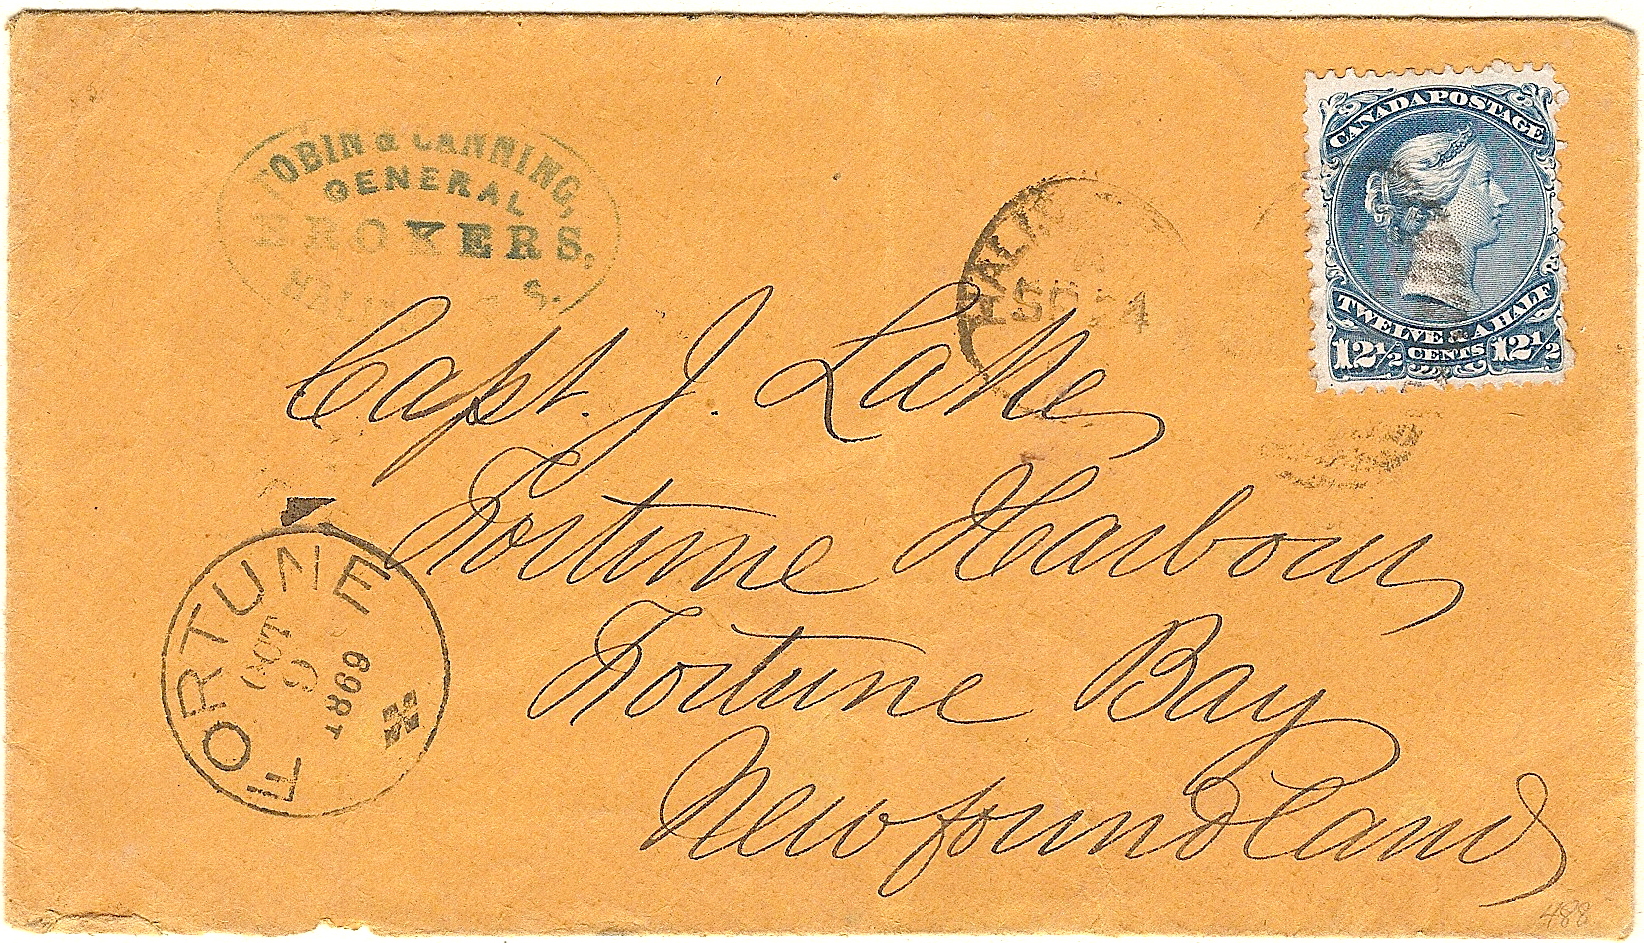 TOBIN & CANNING,
GENERAL
BROKERS,
S.
CANADA POSTAGE
TWELVE & A HALF
12½ CENTS 12½
SP 24
Capt. J. Lake
Fortune Harbour
Fortune Bay
Newfoundland
FORTUNE
OCT
9
1869
488